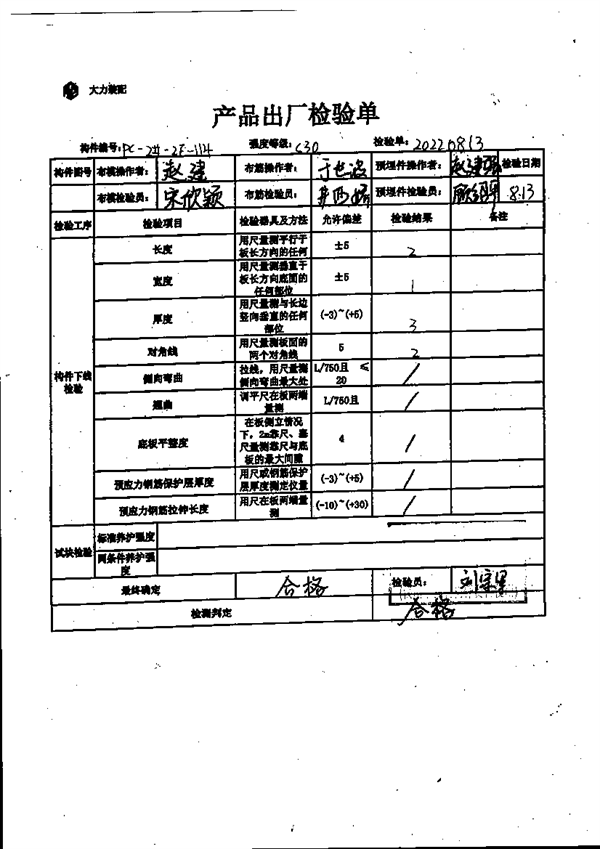 大力装配
产品出厂检验单
构件编号:PC-2#-2F-114 强度等级:C30 检验单:20220813
构件图号 布模操作者: 赵建 布筋操作者: 预埋件操作者: 赵建强 检验日期
布模检验员: 宋欣颖 布筋检验员: 预埋件检验员: 8.13
检验工序 检验项目 检验器具及方法 允许偏差 检验结果 备注
构件下线检验
长度 用尺量测平行于板长方向的任何 ±5 2
宽度 用尺量测垂直于板长方向底面的任何部位 ±5 1
厚度 用尺量测与长边竖向垂直的任何部位 (-3)~(+5) 3
对角线 用尺量测板面的两个对角线 5 2
侧向弯曲 拉线,用尺量测侧向弯曲最大处 L/750且 ≤20 /
翘曲 调平尺在板两端量测 L/750且 /
底板平整度 在板侧立情况下,2m靠尺、塞尺量测靠尺与底板的最大间隙 4 /
预应力钢筋保护层厚度 用尺或钢筋保护层厚度测定仪量 (-3)~(+5) /
预应力钢筋拉伸长度 用尺在板两端量测 (-10)~(+30) /
试块检验 标准养护强度
同条件养护强度
最终确定 合格 检验员:
检测判定 合格